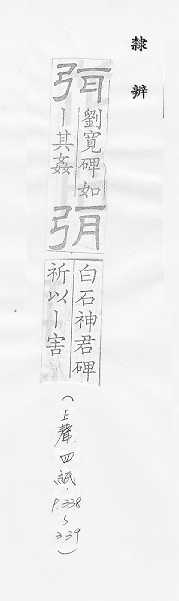 隸辨
弭
劉寬碑如
丨其姦
弭
白石神君碑
祈以丨害
(上聲四紙·P.338~339)